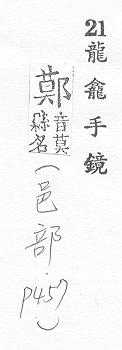 21 龍龕手鏡
鄚
音莫
縣名
(邑部.p457)